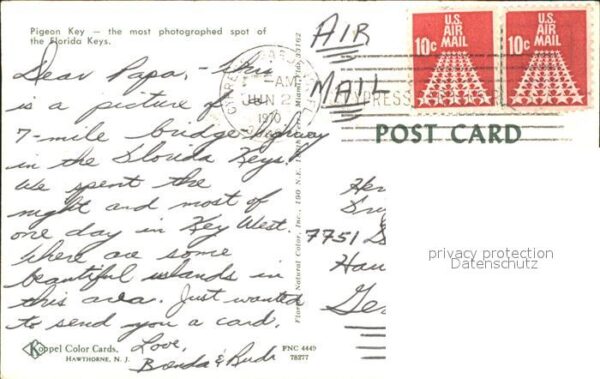 Pigeon Key — the most photographed spot of
the Florida Keys.
Dear Papa, - This
is a picture of
7-mile bridge-highway
in the Florida Keys.
We spent the
night and most of
one day in Key West.
There are some
beautiful islands in
this area. Just wanted
to send you a card.
Love,
Brenda & Bud
Koppel Color Cards,
HAWTHORNE, N. J.
FNC 4449
78277
Natural Color, Inc., 190 N.E.
Miami, Fla. 33162
AIR
MAIL
CYPRESS GARDENS
AM
JUN 2
1970
CYPRESS
U.S.
AIR
MAIL
10c
U.S.
AIR
MAIL
10c
POST CARD
7751
privacy protection
Datenschutz